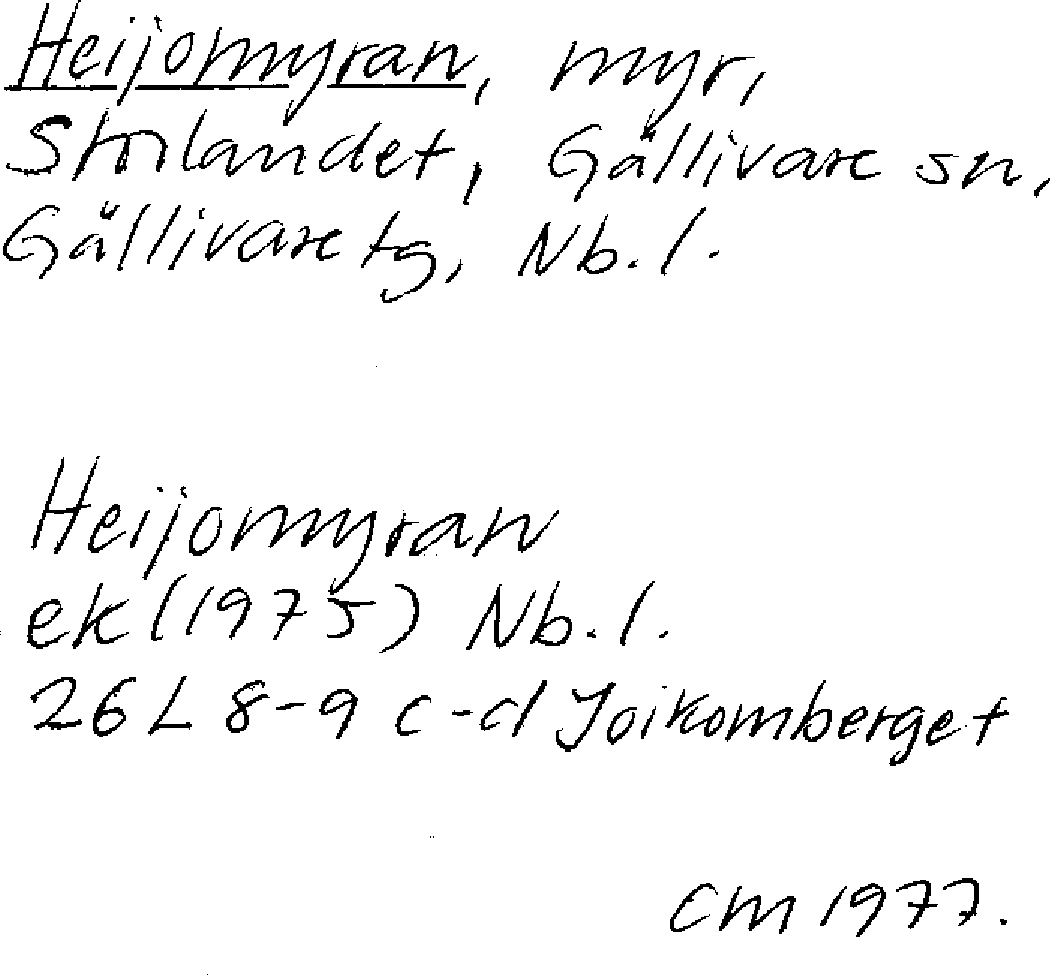 Heijomyran, myr,
Storlandet, Gällivare sn,
Gällivare tg, Nb. l.
Heijomyran
ek (1975) Nb. l.
26 L 8-9 c-d Joikomberget
CM 1977.